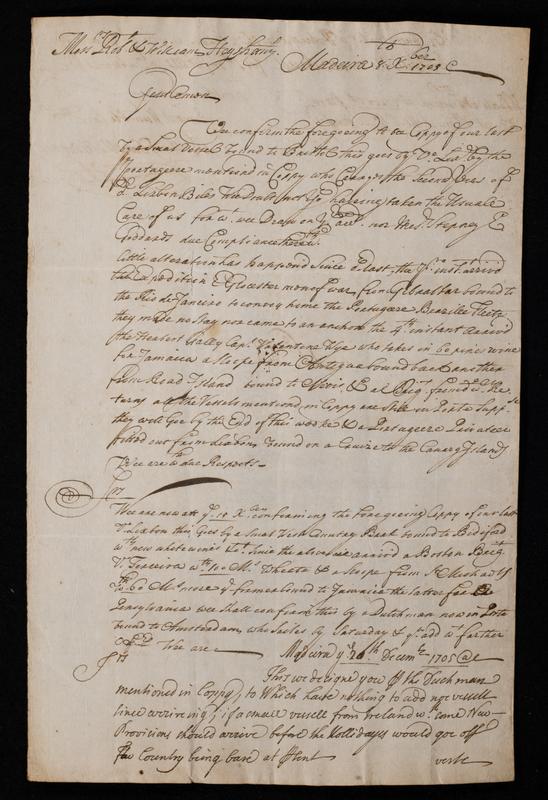 Mess.rs Robt & William Heysham
Madeira 8th Xber 1705
Gentlemen
We confirm the foregoeing to be Coppy of our last
by a Small Vessel bound to this goes by by the
Portugeese mentioned in Coppy who Conveys the Second of
Lisbon Bills Wee Doubt not yo haveing taken the Usuale
Care of us for wt wee Draw on yr acct nor Messrs Stepney &
Goddards due Compliance
little alteration has happend Since our last, the inst arrivd
the Expedition & Gloaster men of war from Gibraltar bound to
the Rio de Janeiro to convoy home the Portugeese Brazilee fleete
they made no Stay nor came to an anchor the 4th instant arrived
the Herbert Galley Capt Valentine who takes in 60 pipes wine
for Jamaica a Sloope from Antegua bound back another
from Road Island bound to Nevis, &
all the Vessels mentiond in Coppy are Still in Porte Suppose
they will goe by the End of this weeke & a Portugeese Privateer
fitted out from Lisbon bound on a Cruize to the Canary Islands
Wee are wth due Respects
Srs
Wee are now at ye 18 Xber confirming the foregoeing Coppy of our last
Lixbon this Goes by a Small West Country Bark bound to Biddiford
wth new white wines Since the above is arrived a Boston Brigt
V. Terceira wth 100 Ms Wheate & a Sloope from St Michaels
wth 60 Ms more ye former bound to Jamaica the latter for
Pensilvania we shall confirm this by a Dutchman now in Porte
bound to Amsterdam who Sailes by Saturday & add wt farther
Wee are
Madeira ye 20th Decembr 1705
Srs
This we designe you by the Duchman
mentioned in Coppy, to which have nothing to add nor vessell
since arriveing; if a small vessell from Ireland wth some New
Provicions should arrive before the Hollidayes would goe off
the Country being bare at present